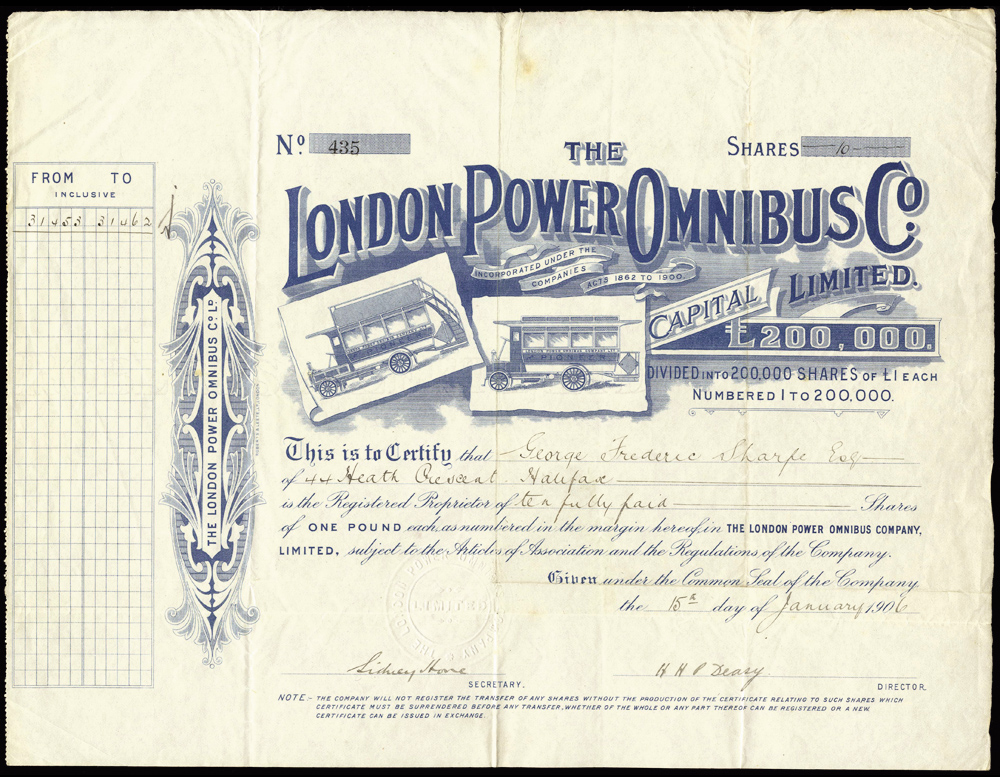 Nº 435
SHARES 10
THE
LONDON POWER OMNIBUS Cº
LIMITED.
INCORPORATED UNDER THE
COMPANIES ACTS 1862 TO 1900.
CAPITAL
£200,000.
DIVIDED INTO 200,000 SHARES OF £1 EACH
NUMBERED 1 TO 200,000.
FROM TO
INCLUSIVE
31453 31462
THE LONDON POWER OMNIBUS Cº Lᴰ.
LONDON POWER OMNIBUS COMPANY LTD
PIONEER
This is to Certify that George Frederic Sharpe Esq
of 44 Heath Crescent Halifax
is the Registered Proprietor of ten fully paid Shares
of ONE POUND each, as numbered in the margin hereof, in THE LONDON POWER OMNIBUS COMPANY,
LIMITED, subject to the Articles of Association and the Regulations of the Company.
Given under the Common Seal of the Company
the 15th day of January 1906
LIMITED
Sidney Hone
SECRETARY.
H H P Deasy
DIRECTOR.
NOTE:- THE COMPANY WILL NOT REGISTER THE TRANSFER OF ANY SHARES WITHOUT THE PRODUCTION OF THE CERTIFICATE RELATING TO SUCH SHARES WHICH
CERTIFICATE MUST BE SURRENDERED BEFORE ANY TRANSFER, WHETHER OF THE WHOLE OR ANY PART THEREOF CAN BE REGISTERED OR A NEW
CERTIFICATE CAN BE ISSUED IN EXCHANGE.